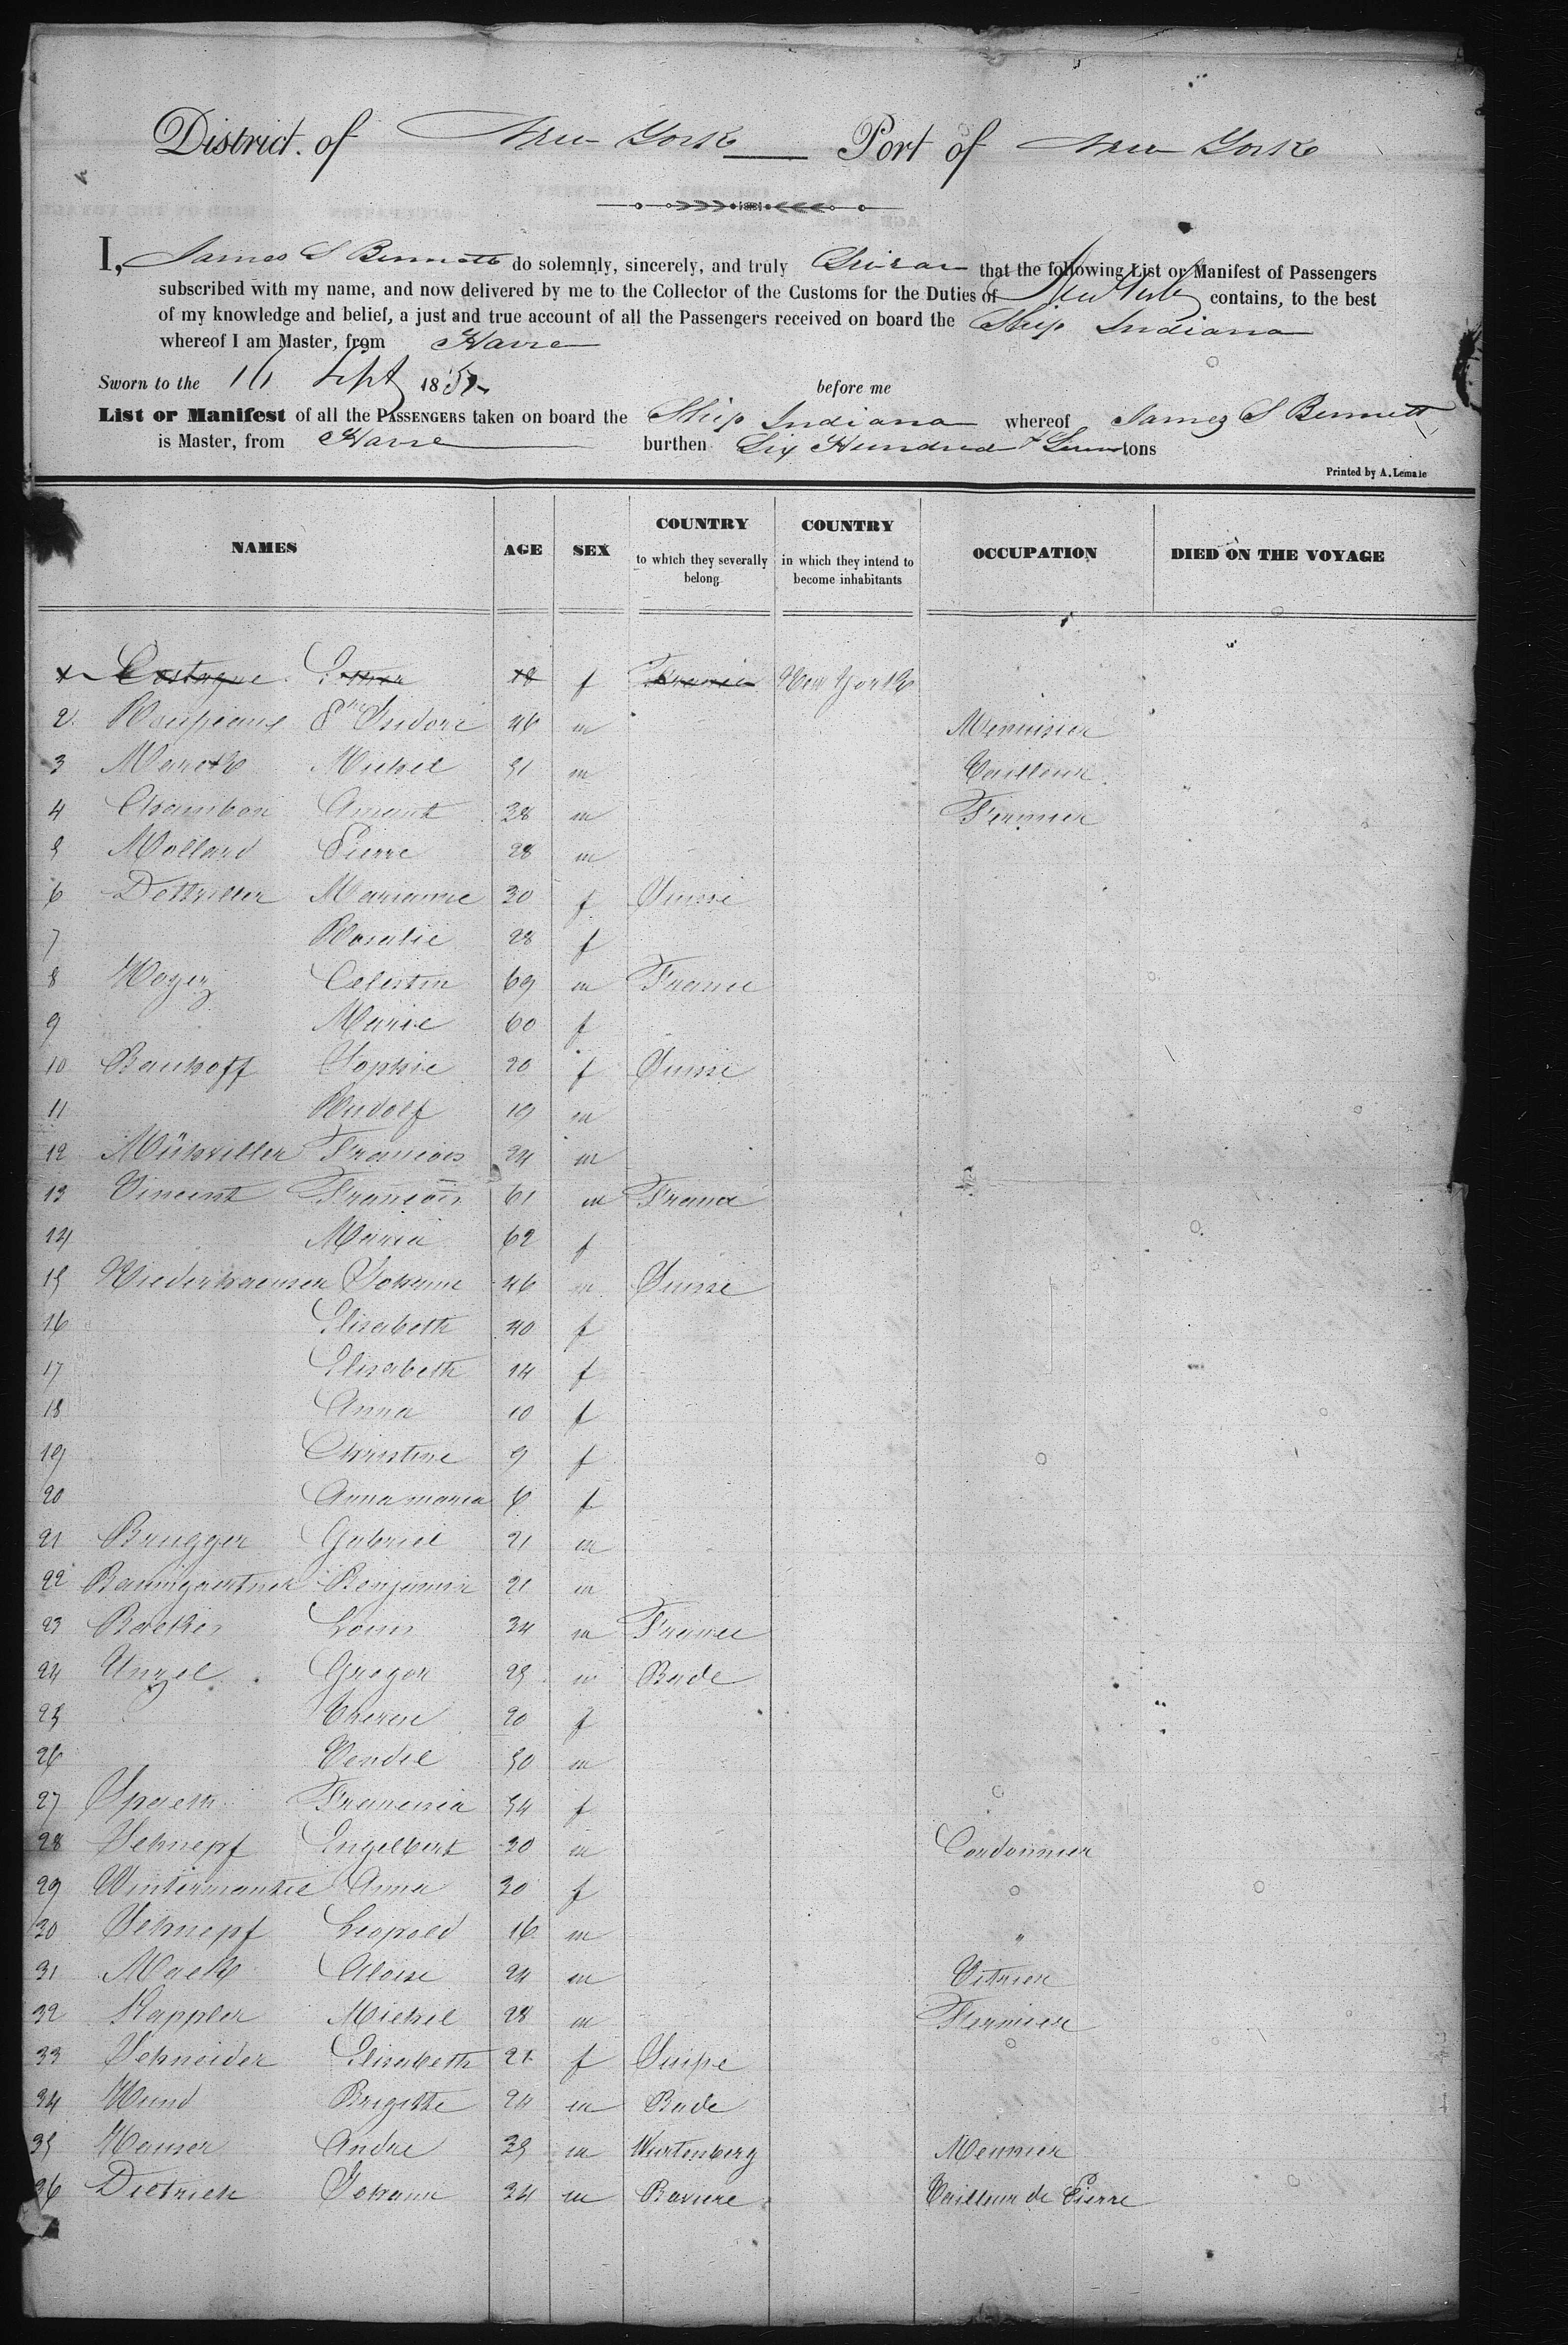 District of New York Port of New York
I, James S Bennett do solemnly, sincerely, and truly Swear that the following List or Manifest of Passengers
subscribed with my name, and now delivered by me to the Collector of the Customs for the Duties of New York contains, to the best
of my knowledge and belief, a just and true account of all the Passengers received on board the Ship Indiana
whereof I am Master, from Havre
Sworn to the 16 Sept 1851 before me
List or Manifest of all the PASSENGERS taken on board the Ship Indiana whereof James S Bennett
is Master, from Havre burthen Six Hundred tons
Printed by A. Lemale
NAMES AGE SEX COUNTRY to which they severally belong. COUNTRY in which they intend to become inhabitants OCCUPATION DIED ON THE VOYAGE
Castagne f France New York
2 Isidore 46 m Menuisier
3 Michel 31 m Tailleur
4 Chambon Amant 38 m Fermier
5 Mollard Pierre 28 m
6 Dettviller Marianne 30 f Suisse
7 Rosalie 28 f
8 Celestin 69 m France
9 Marie 60 f
10 Bauhoff Sophie 20 f Suisse
11 Rudolf 19 m
12 Mühviller Francois 24 m
13 Vincent Francois 61 m France
14 Maria 62 f
15 Niederhaeuser Johann 46 m Suisse
16 Elisabeth 40 f
17 Elisabeth 14 f
18 Anna 10 f
19 Christine 9 f
20 Anna maria 6 f
21 Brugger Gabriel 21 m
22 Baumgaertner Benjamin 21 m
23 Louis 34 m France
24 Unzel Gregor 25 m Bade
25 Therese 20 f
26 Vendel 50 m
27 Spaeth Francisca 54 f
28 Schnepf Engelbert 30 m Cordonnier
29 Wintermantel Anna 30 f
30 Schnepf Leopold 16 m "
31 Mack Aloise 24 m Vitrier
32 Kappler Michel 28 m Fermier
33 Schneider Elisabeth 21 f Suisse
34 Hund Brigitte 24 m Bade
35 Hauser Andre 35 m Wurtenberg Meunier
36 Dietrich Johann 34 m Baviere Tailleur de Pierre